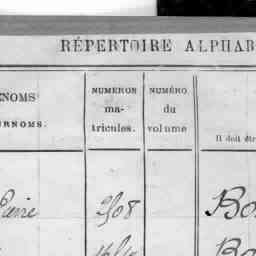 RÉPERTOIRE ALPHAB
ENOMS
URNOMS.
NUMÉROS
ma-
tricules.
NUMÉRO
du
volume
Il doit êtr
Pierre
2508
Bo
Bo